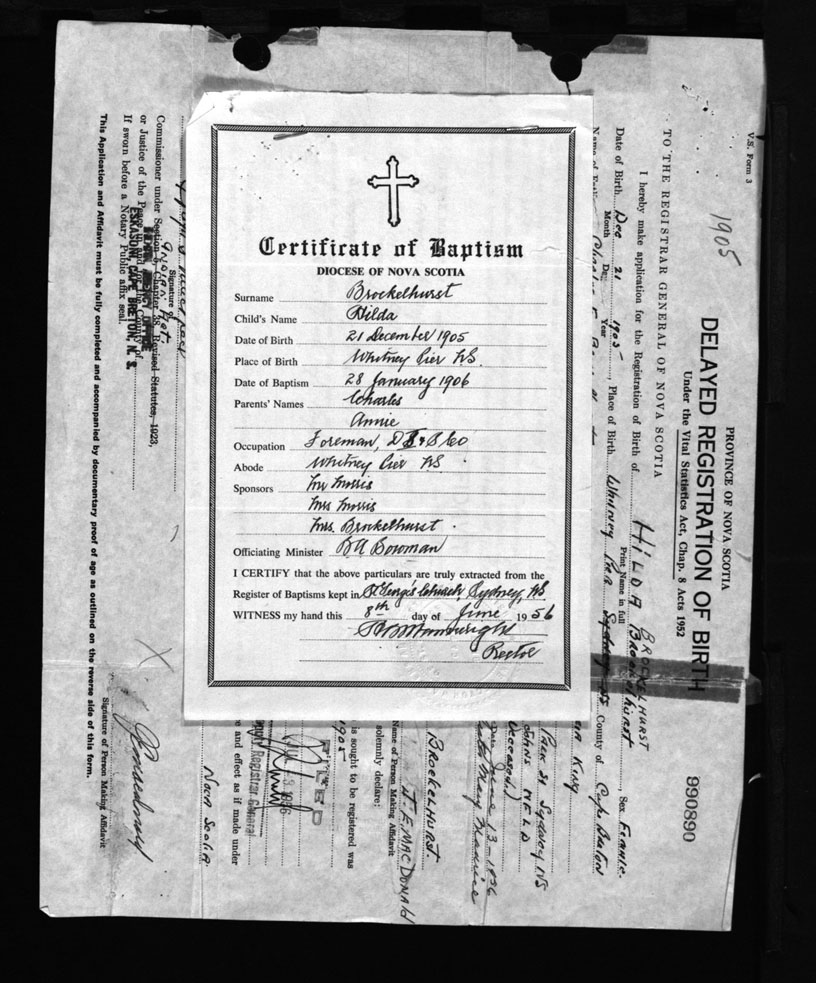 Certificate of Baptism
DIOCESE OF NOVA SCOTIA
Surname Brockelhurst
Child's Name Hilda
Date of Birth 21 December 1905
Place of Birth Whitney Pier NS.
Date of Baptism 28 January 1906
Parents' Names Charles
Annie
Occupation Foreman, D & S Co
Abode Whitney Pier NS
Sponsors Mr Morris
Mrs Morris
Mrs. Brockelhurst.
Officiating Minister B A Bowman
I CERTIFY that the above particulars are truly extracted from the
Register of Baptisms kept in St George's Church, Sydney, NS
WITNESS my hand this 8th day of June 1956
Rector
V.S. Form 3
1905
PROVINCE OF NOVA SCOTIA
DELAYED REGISTRATION OF BIRTH
Under the Vital Statistics Act, Chap. 8 Acts 1952
990890
TO THE REGISTRAR GENERAL OF NOVA SCOTIA
BROCKELHURST
I hereby make application for the Registration of Birth of HILDA Brockelhurst, Sex Female.
Print Name in full
Date of Birth Dec 21 1905, Place of Birth Whitney Pier Sydney NS County of Cape Breton
Month Day Year
Name of
King
Sydney NS
Johns NFLD
Deceased.)
June 13-1936
Mary
BROCKELHURST.
J. E. MACDONALD
Name of Person Making Affidavit
solemnly declare:
is sought to be registered was
1905
FILED
Deputy Registrar General
e and effect as if made under
NOVA SCOTIA.
Signature of
Indian Agt.
Commissioner under Section 6, Chapter 38, Revised Statutes, 1923,
or Justice of the Peace in and for the County of
INDIAN AGENCY OFFICE
ESKASONI, CAPE BRETON, N. S.
If sworn before a Notary Public affix seal.
X
Signature of Person Making Affidavit
This Application and Affidavit must be fully completed and accompanied by documentary proof of age as outlined on the reverse side of this form.